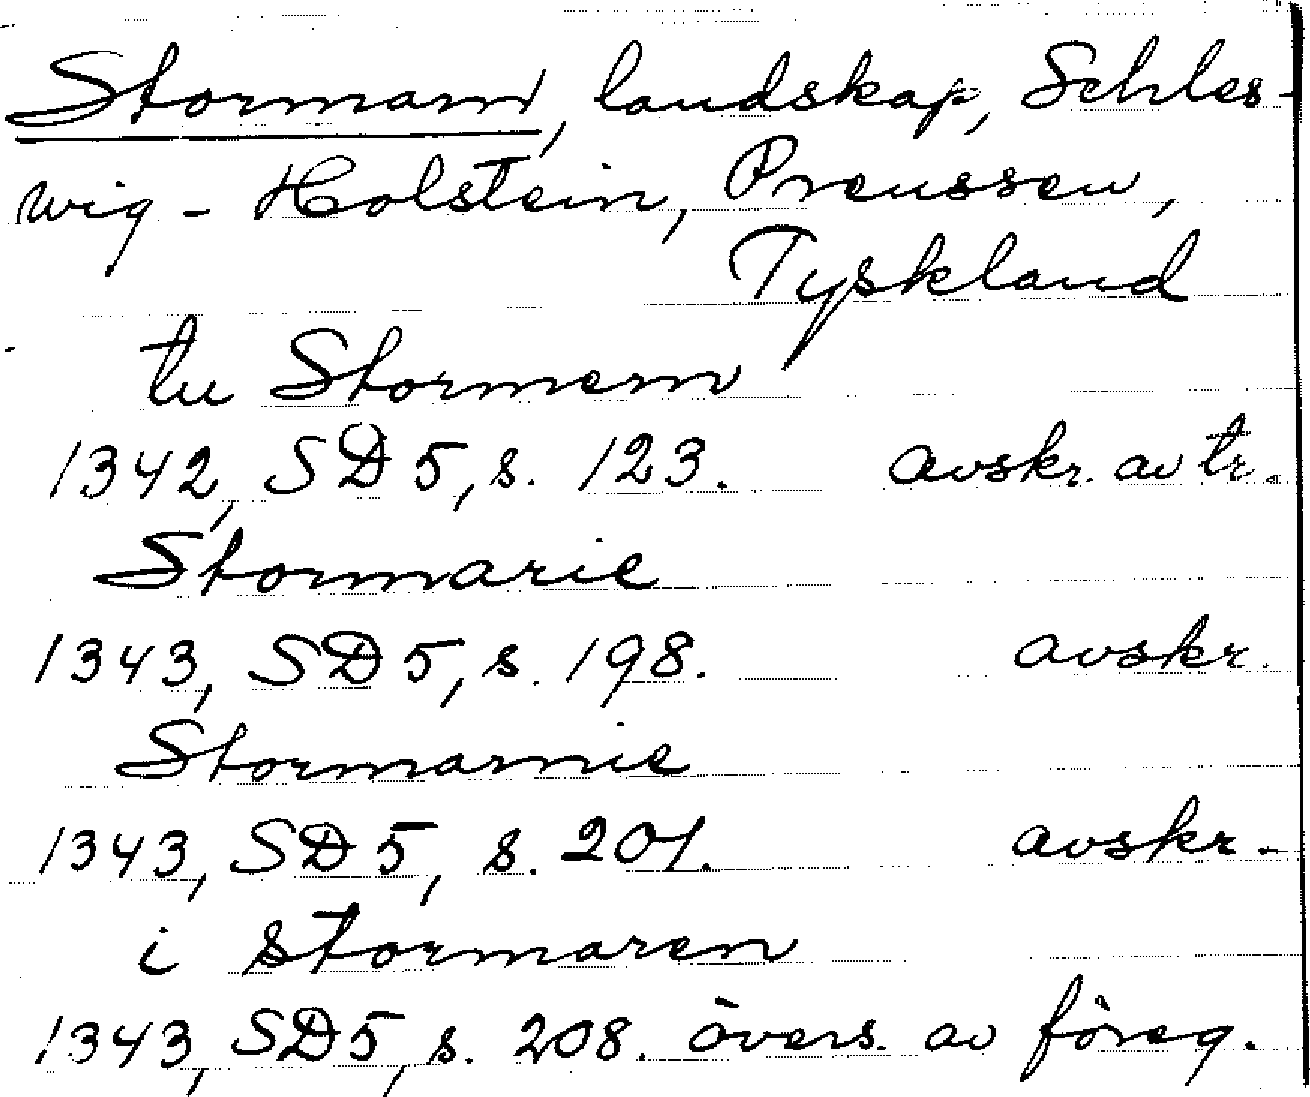 Stormarn, landskap, Schles-
wig - Holstein, Preussen,
Tyskland
tu Stormern
1342, SD 5, s. 123. avskr. av tr.
Stormarie
1343, SD 5, s. 198. avskr.
Stormarnie
1343, SD 5, s. 201. avskr.
i stormaren
1343, SD 5, s. 208. övers. av föreg.